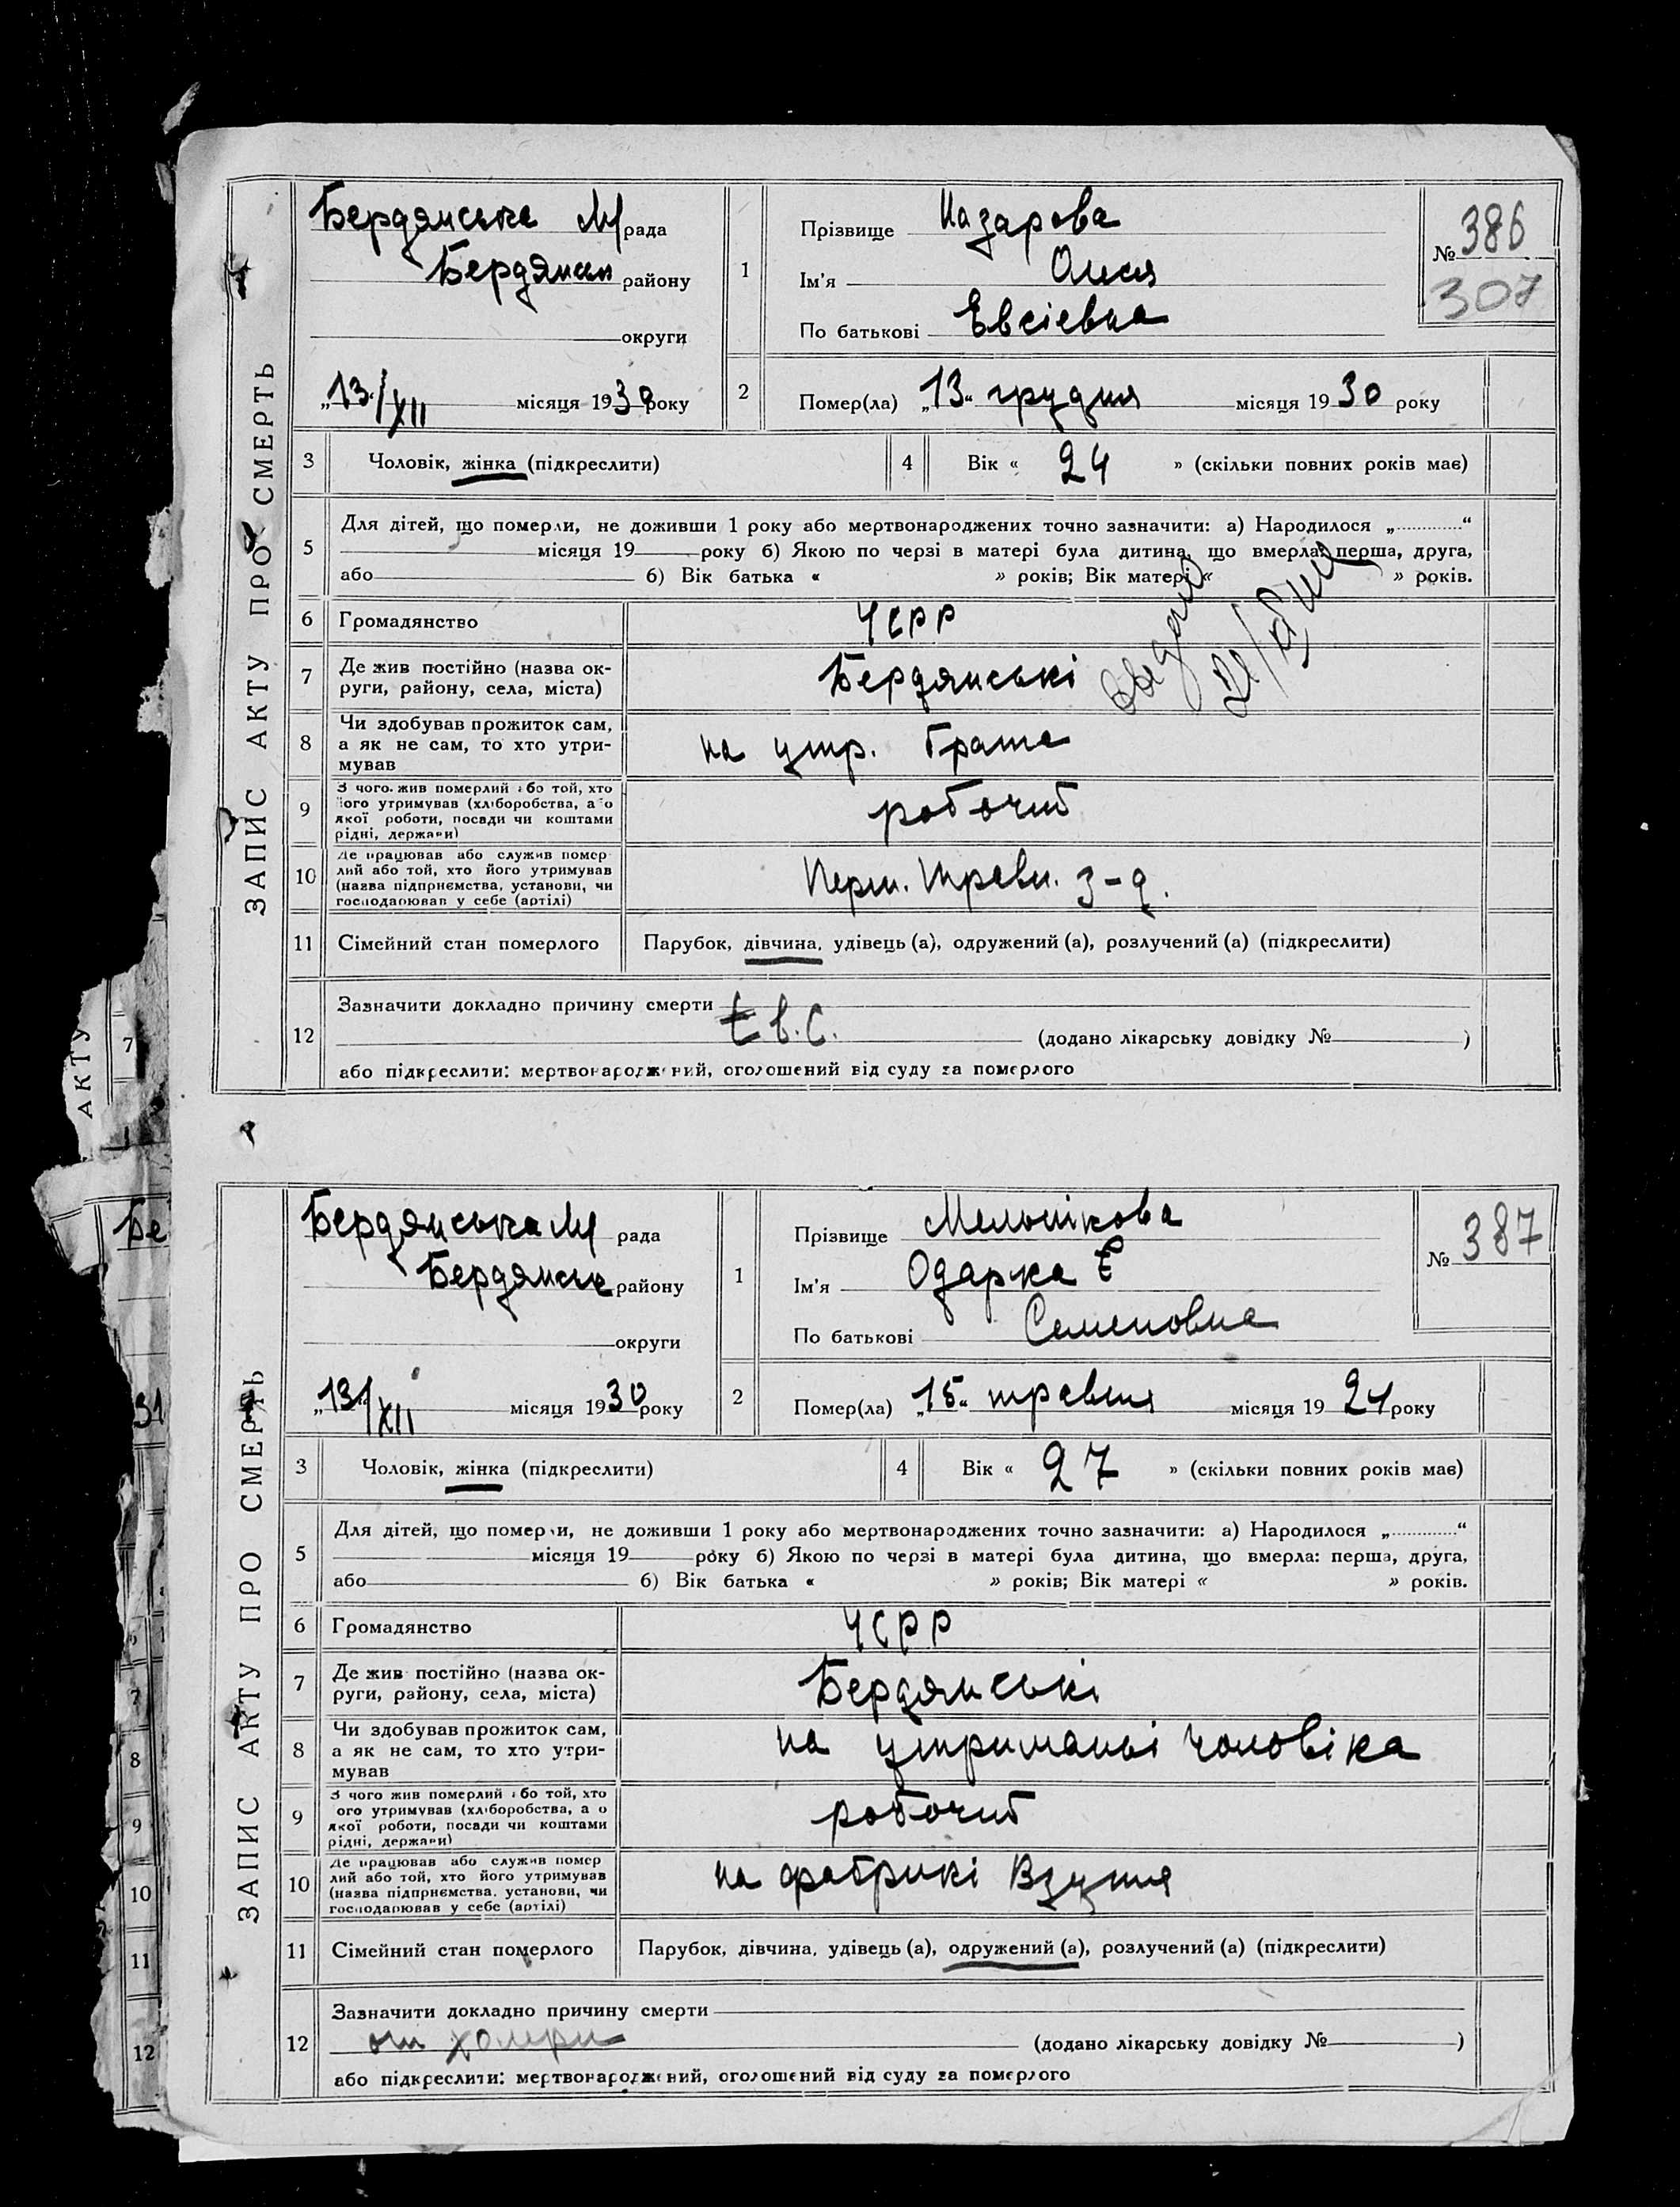 ЗАПИС АКТУ ПРО СМЕРТЬ
Бердянська М рада
Бердянськ району
округи
„13“/XII місяця 1930 року
1
Прізвище Назарова
Ім'я Олеся
По батькові Евсіевна
№ 386
307
2
Помер(ла) „13“ грудня місяця 1930 року
3 Чоловік, жінка (підкреслити)
4 Вік « 24 » (скільки повних років має)
5 Для дітей, що померли, не доживши 1 року або мертвонароджених точно зазначити: а) Народилося „ “
місяця 19 року б) Якою по черзі в матері була дитина, що вмерла: перша, друга,
або б) Вік батька « » років; Вік матері « » років.
6 Громадянство УСРР
7 Де жив постійно (назва ок-
руги, району, села, міста) Бердянські
8 Чи здобував прожиток сам,
а як не сам, то хто утри-
мував на утр. брата
9 З чого жив померлий або той, хто
його утримував (хліборобства, або
якої роботи, посади чи коштами
рідні, держави) робочий
10 Де працював або служив помер-
лий або той, хто його утримував
(назва підприємства, установи, чи
господарював у себе (артілі) Перш. Травн. з-д.
11 Сімейний стан померлого Парубок, дівчина, удівець (а), одружений (а), розлучений (а) (підкреслити)
12 Зазначити докладно причину смерти
t b. c. (додано лікарську довідку № )
або підкреслити: мертвонароджений, оголошений від суду за померлого
ЗАПИС АКТУ ПРО СМЕРТЬ
Бердянська М рада
Бердянськ району
округи
„13“/XII місяця 1930 року
1
Прізвище Мельнікова
Ім'я Одарка Є
По батькові Семеновна
№ 387
2
Помер(ла) „15“ травня місяця 1921 року
3 Чоловік, жінка (підкреслити)
4 Вік « 27 » (скільки повних років має)
5 Для дітей, що померли, не доживши 1 року або мертвонароджених точно зазначити: а) Народилося „ “
місяця 19 року б) Якою по черзі в матері була дитина, що вмерла: перша, друга,
або б) Вік батька « » років; Вік матері « » років.
6 Громадянство УСРР
7 Де жив постійно (назва ок-
руги, району, села, міста) Бердянські
8 Чи здобував прожиток сам,
а як не сам, то хто утри-
мував на утриманьі чоловіка
9 З чого жив померлий або той, хто
його утримував (хліборобства, або
якої роботи, посади чи коштами
рідні, держави) робочий
10 Де працював або служив помер
лий або той, хто його утримував
(назва підприємства, установи, чи
господарював у себе (артілі) на фабрикі Взуття
11 Сімейний стан померлого Парубок, дівчина, удівець (а), одружений (а), розлучений (а) (підкреслити)
12 Зазначити докладно причину смерти
от холери (додано лікарську довідку № )
або підкреслити: мертвонароджений, оголошений від суду за померлого
АКТУ
7
Бе
31
7
8
9
10
11
12